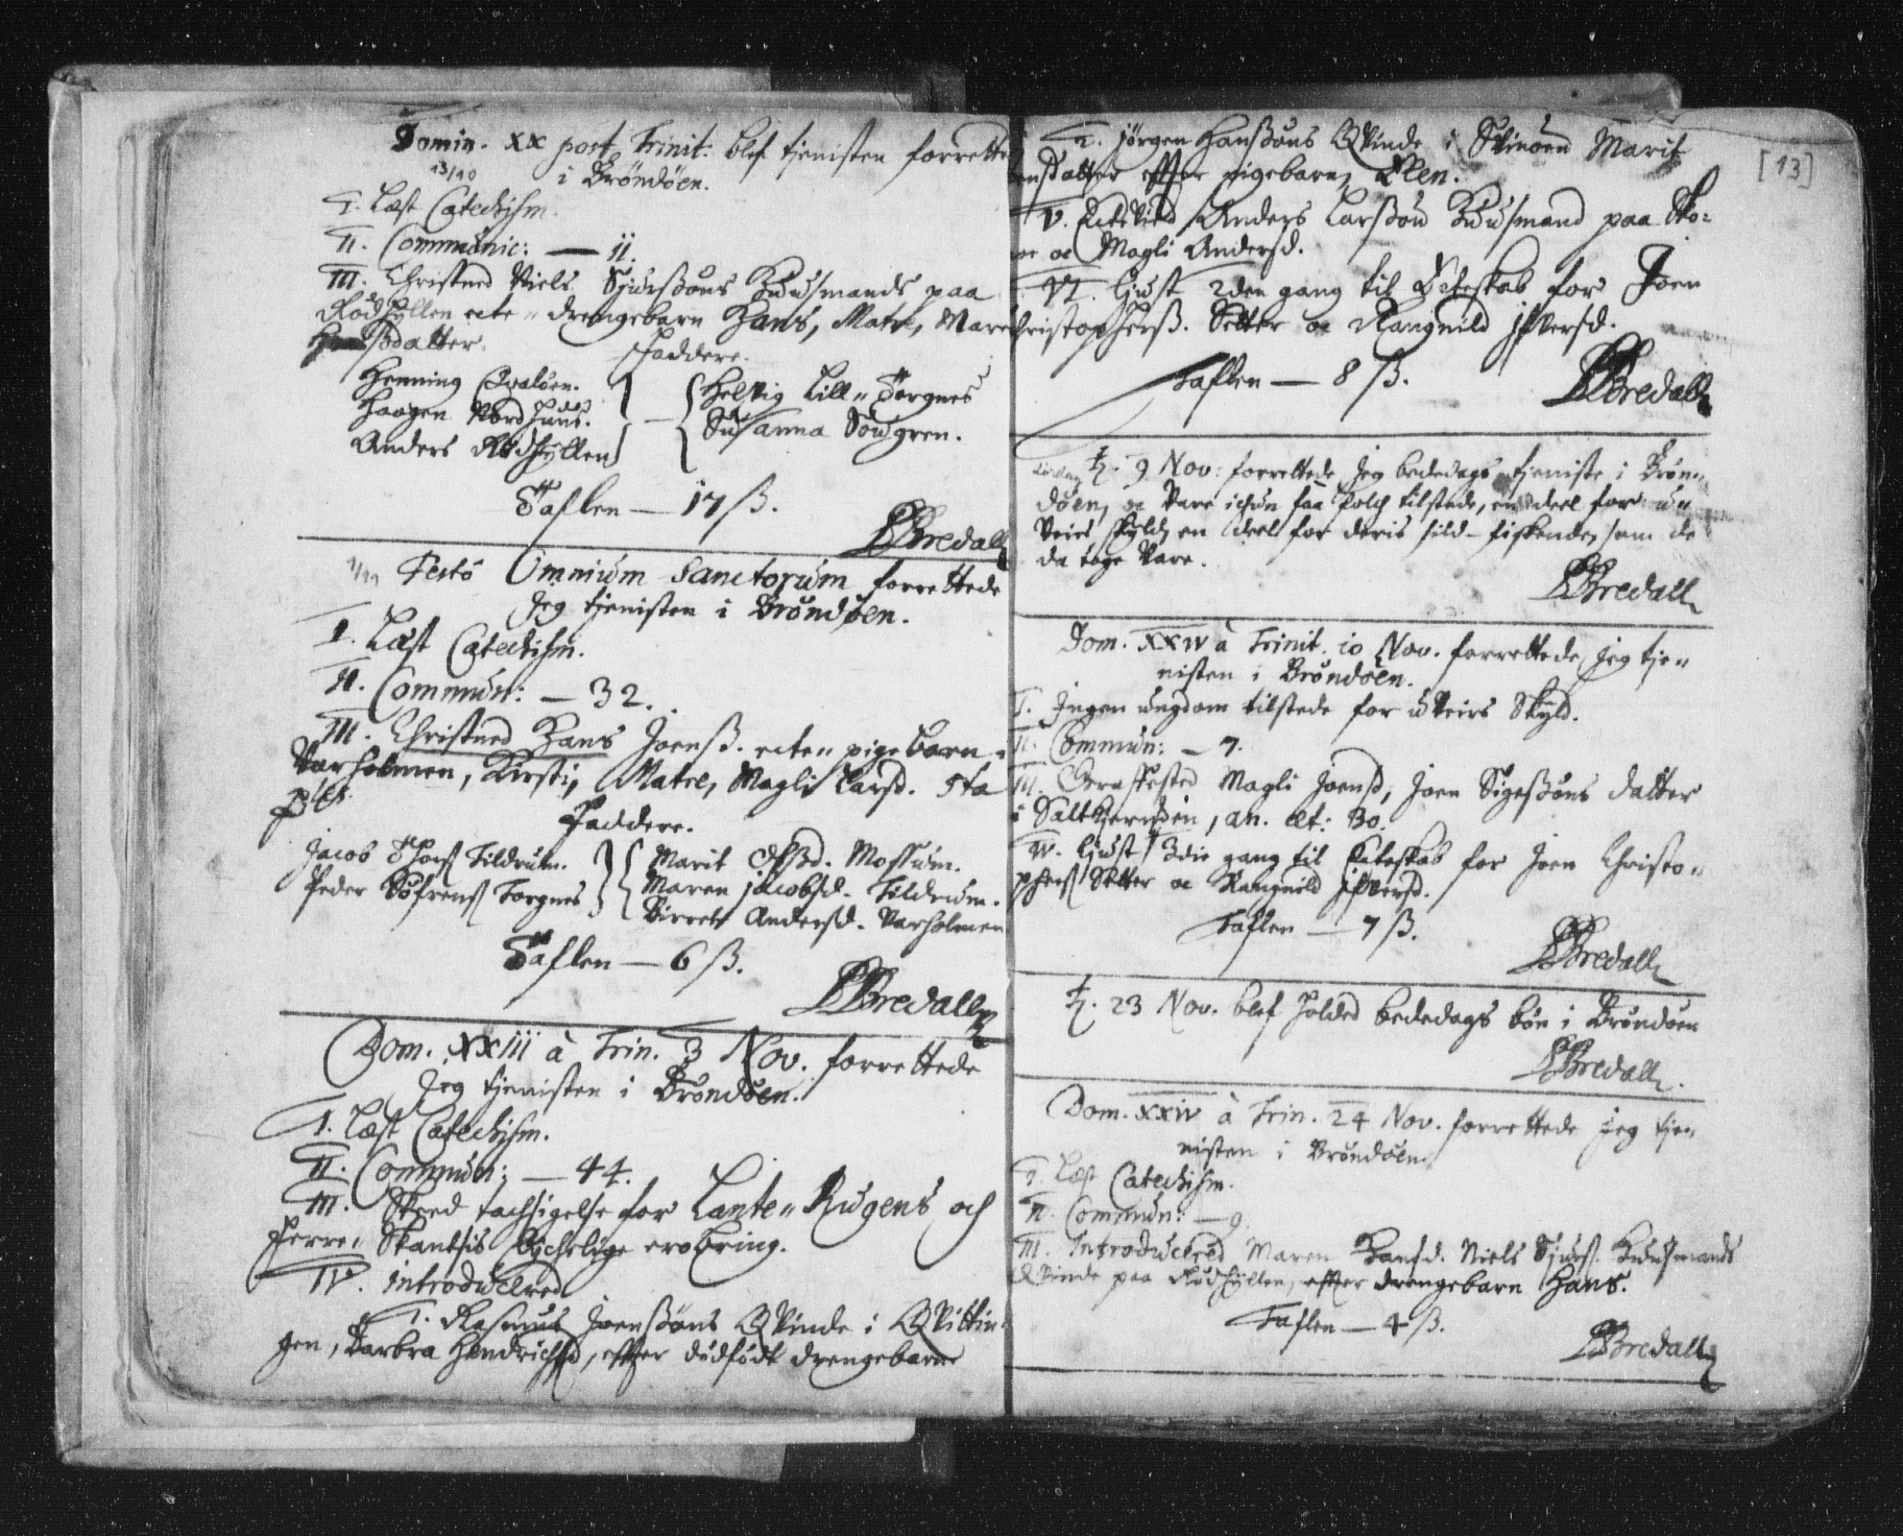 Domin. XX post Trinit: blef tienisten forrette
13/10 i Bröndöen.
I. Læst Catechism.
II. Communic: — 11.
III. Christned Niels Sjurßöns Huusmands paa
Rödhyllen ecte- drengebarn Hans, Matr, Maren
Hansdatter. Faddere.
Henning Qvalöen. Helvig Lill-Torgnes
Haagen Nordhuus. Susanna Söugren.
Anders Rödhyllen
Taflen — 17 ß.
Bredall
1/11 Festo Omnium Sanctorum forrettede
Jeg tienisten i Bröndöen.
I. Læst Catechism.
II. Commun: — 32.
III. Christned Hans Joenß. ecte- pigebarn i
Varholmen, Kirsti, Matre, Magli Larsd.
Faddere.
Jacob Thorß Tildrum. Marit Olßd. Mossum.
Peder Söfrenß Torgnes Maren Jacobsd. Tildrum.
Birrete Andersd. Varholmen
Taflen — 6 ß.
Bredall
Dom. XXIII à Trin. 3 Nov. forrettede
Jeg tienisten i Bröndöen.
I. Læst Catechism.
II. Commun: — 44.
III. Skeed tachsigelse for Lante- Rugens och
Ferre- Skantsis lychelige erobring.
IV. Introducered
1. Rasmus Joenßöns Qvinde i Qvittin-
gen, Barbra Hendrichsd, efter dödfödt drengebarn
[13]
2. Jörgen Hanßöns Qvinde i Skinöen Marit
datter efter pigebarn, Elen.
V. Ectevied Anders Larßön Huusmand paa Sko-
oc Magli Andersd.
VI. Liust 2den gang til Ecteskab for Joen
Christopherß. Setter oc Rangnild Ifversd.
Taflen — 8 ß.
Bredall
Löverdag ♄. 9 Nov: forrettede Jeg bededags tieniste i Brön-
döen, oc vare ichun faa folch tilstede, en deel for u-
veirs skyld, en deel for deris sild-fiskende, som de
da toge vare.
Bredall
Dom. XXIV à Trinit. 10 Nov. forrettede Jeg tie-
nisten i Bröndöen.
I. Ingen ungdom tilstede for uveirs Skyld.
II. Commun: — 7.
III. Graffested Magli Joensd, Joen Sigeßöns datter
i Saltkjernsöen, an. æt: 30.
IV. Liust 3die gang til Ecteskab for Joen Christo-
pherß Setter oc Rangnild Ifversd.
Taflen — 7 ß.
Bredall
♄. 23 Nov. blef holded bededags bön i Bröndöen
Bredall.
Dom. XXIV à Trin. 24 Nov. forrettede jeg tie-
nisten i Bröndöen
I. Læst Catechism.
II. Commun: — 9.
III. Introducered Maren Hansd. Niels Sjurs. Huusmands
Qvinde paa Rödhyllen, efter drengebarn Hans.
Taflen — 4 ß.
Bredall